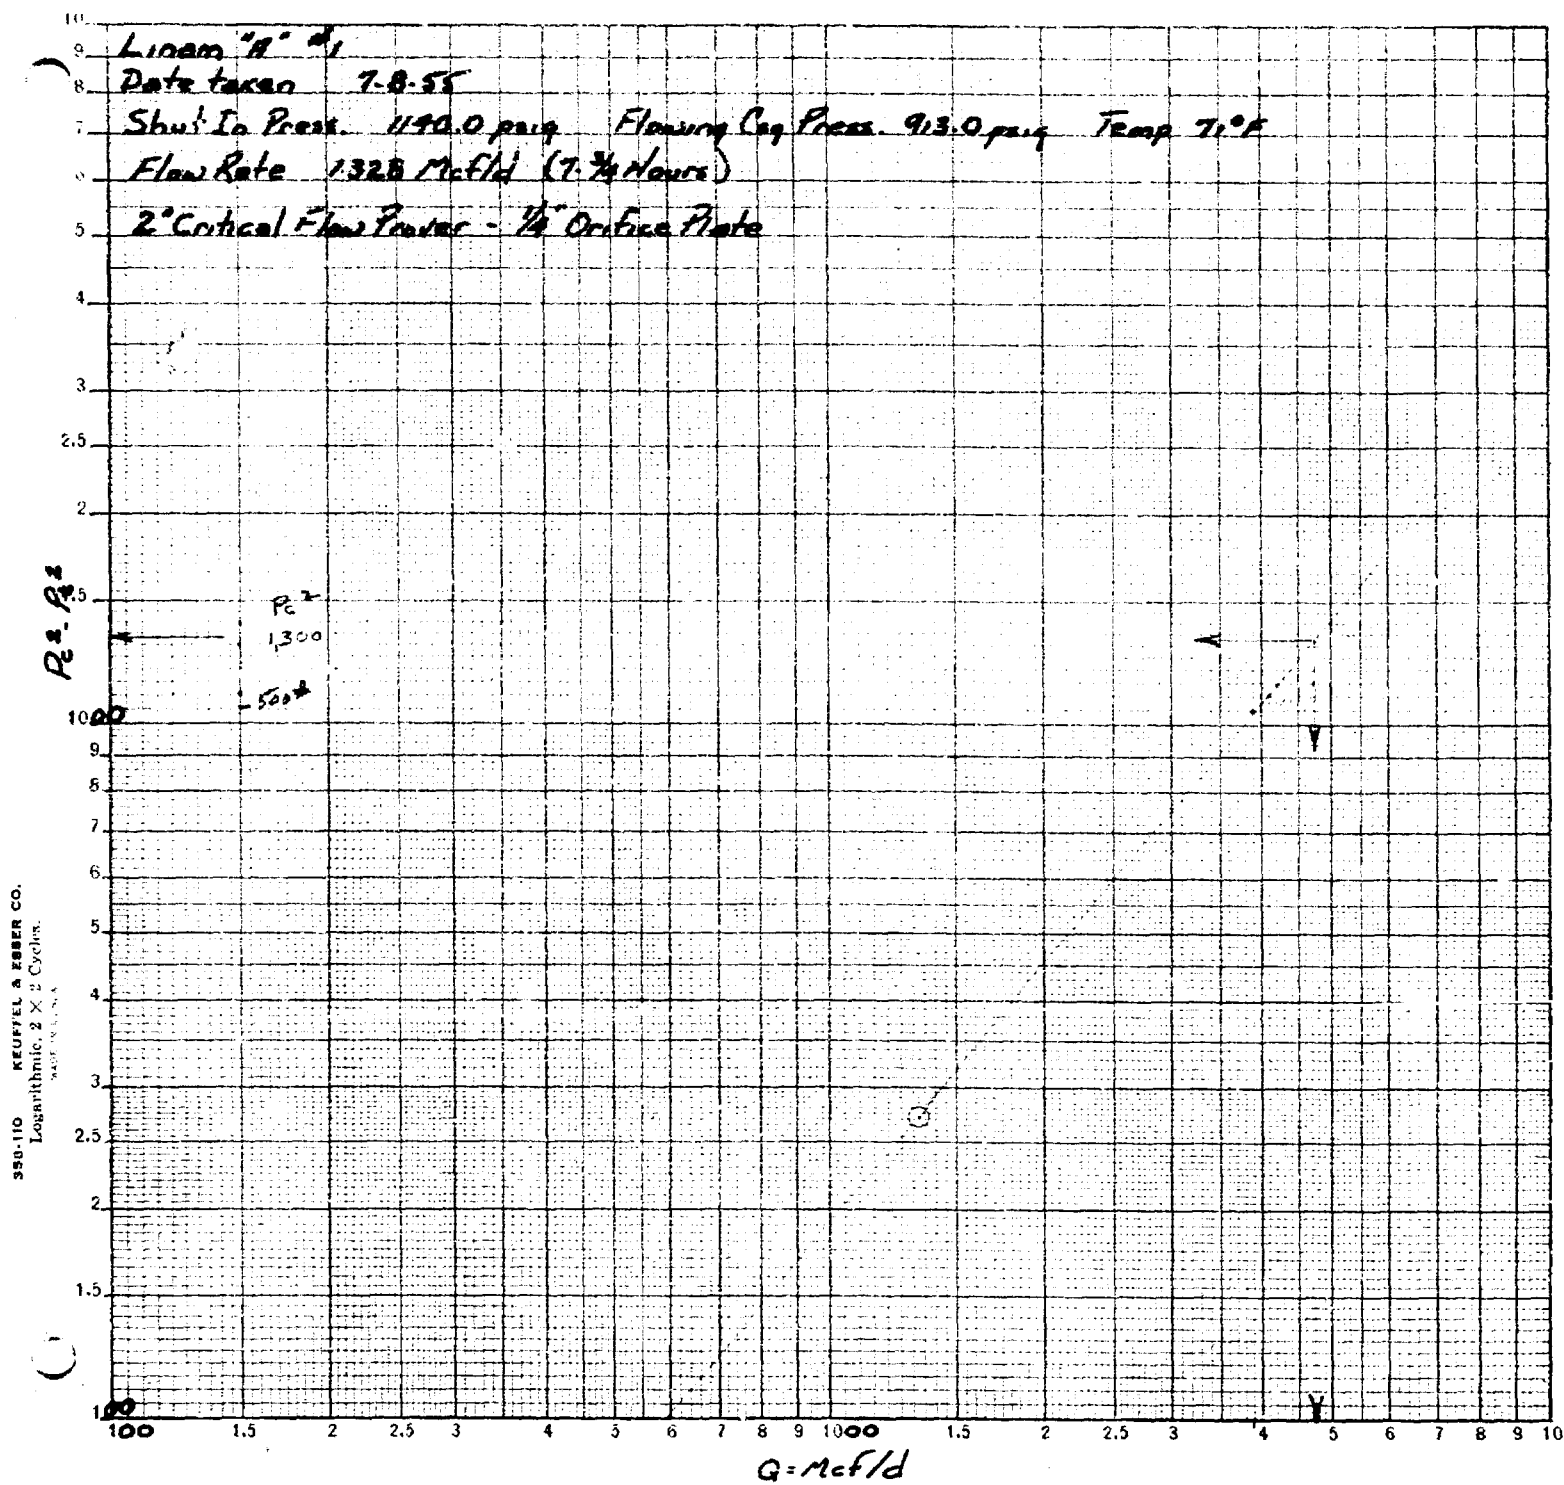 Linam "A" #1
Date taken 7-8-55
Shut In Press. 1140.0 psig Flowing Csg Press. 913.0 psig Temp 71°F
Flow Rate 1328 Mcf/d (7-3/4 Hours)
2" Critical Flow Prover - 1/4" Orifice Plate
10
9
8
7
6
5
4
3
2.5
2
1.5
1000
9
8
7
6
5
4
3
2.5
2
1.5
100
Pc²
1,300
500#
Pc² - Pt²
358-110 KEUFFEL & ESSER CO.
Logarithmic, 2 X 2 Cycles.
MADE IN U.S.A.
100 1.5 2 2.5 3 4 5 6 7 8 9 1000 1.5 2 2.5 3 4 5 6 7 8 9 10
Q = Mcf/d